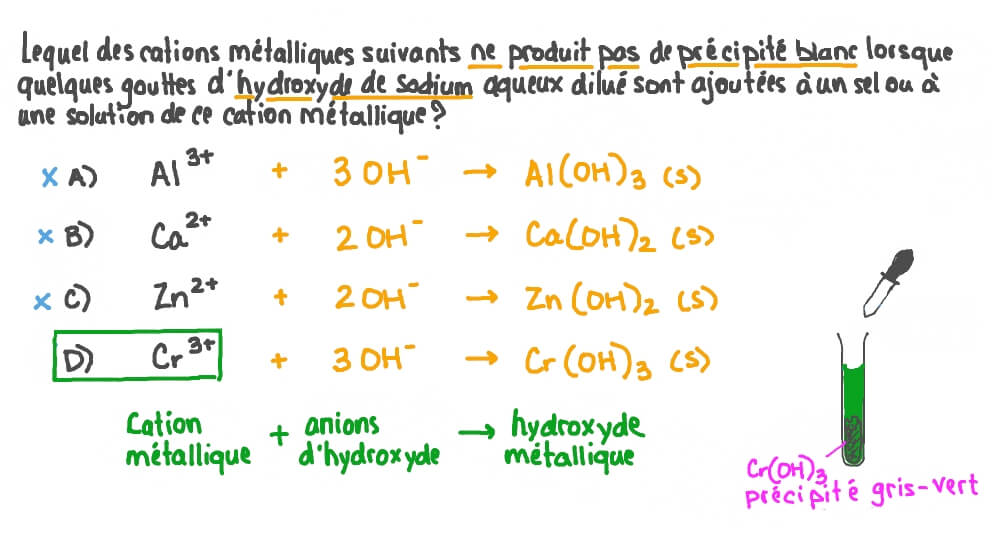 Lequel des cations métalliques suivants ne produit pas de précipité blanc lorsque
quelques gouttes d'hydroxyde de sodium aqueux dilué sont ajoutées à un sel ou à
une solution de ce cation métallique?
x A) Al³⁺ + 3 OH⁻ → Al(OH)₃ (s)
x B) Ca²⁺ + 2 OH⁻ → Ca(OH)₂ (s)
x C) Zn²⁺ + 2 OH⁻ → Zn(OH)₂ (s)
D) Cr³⁺ + 3 OH⁻ → Cr(OH)₃ (s)
Cation métallique + anions d'hydroxyde → hydroxyde métallique
Cr(OH)₃
précipité gris-vert